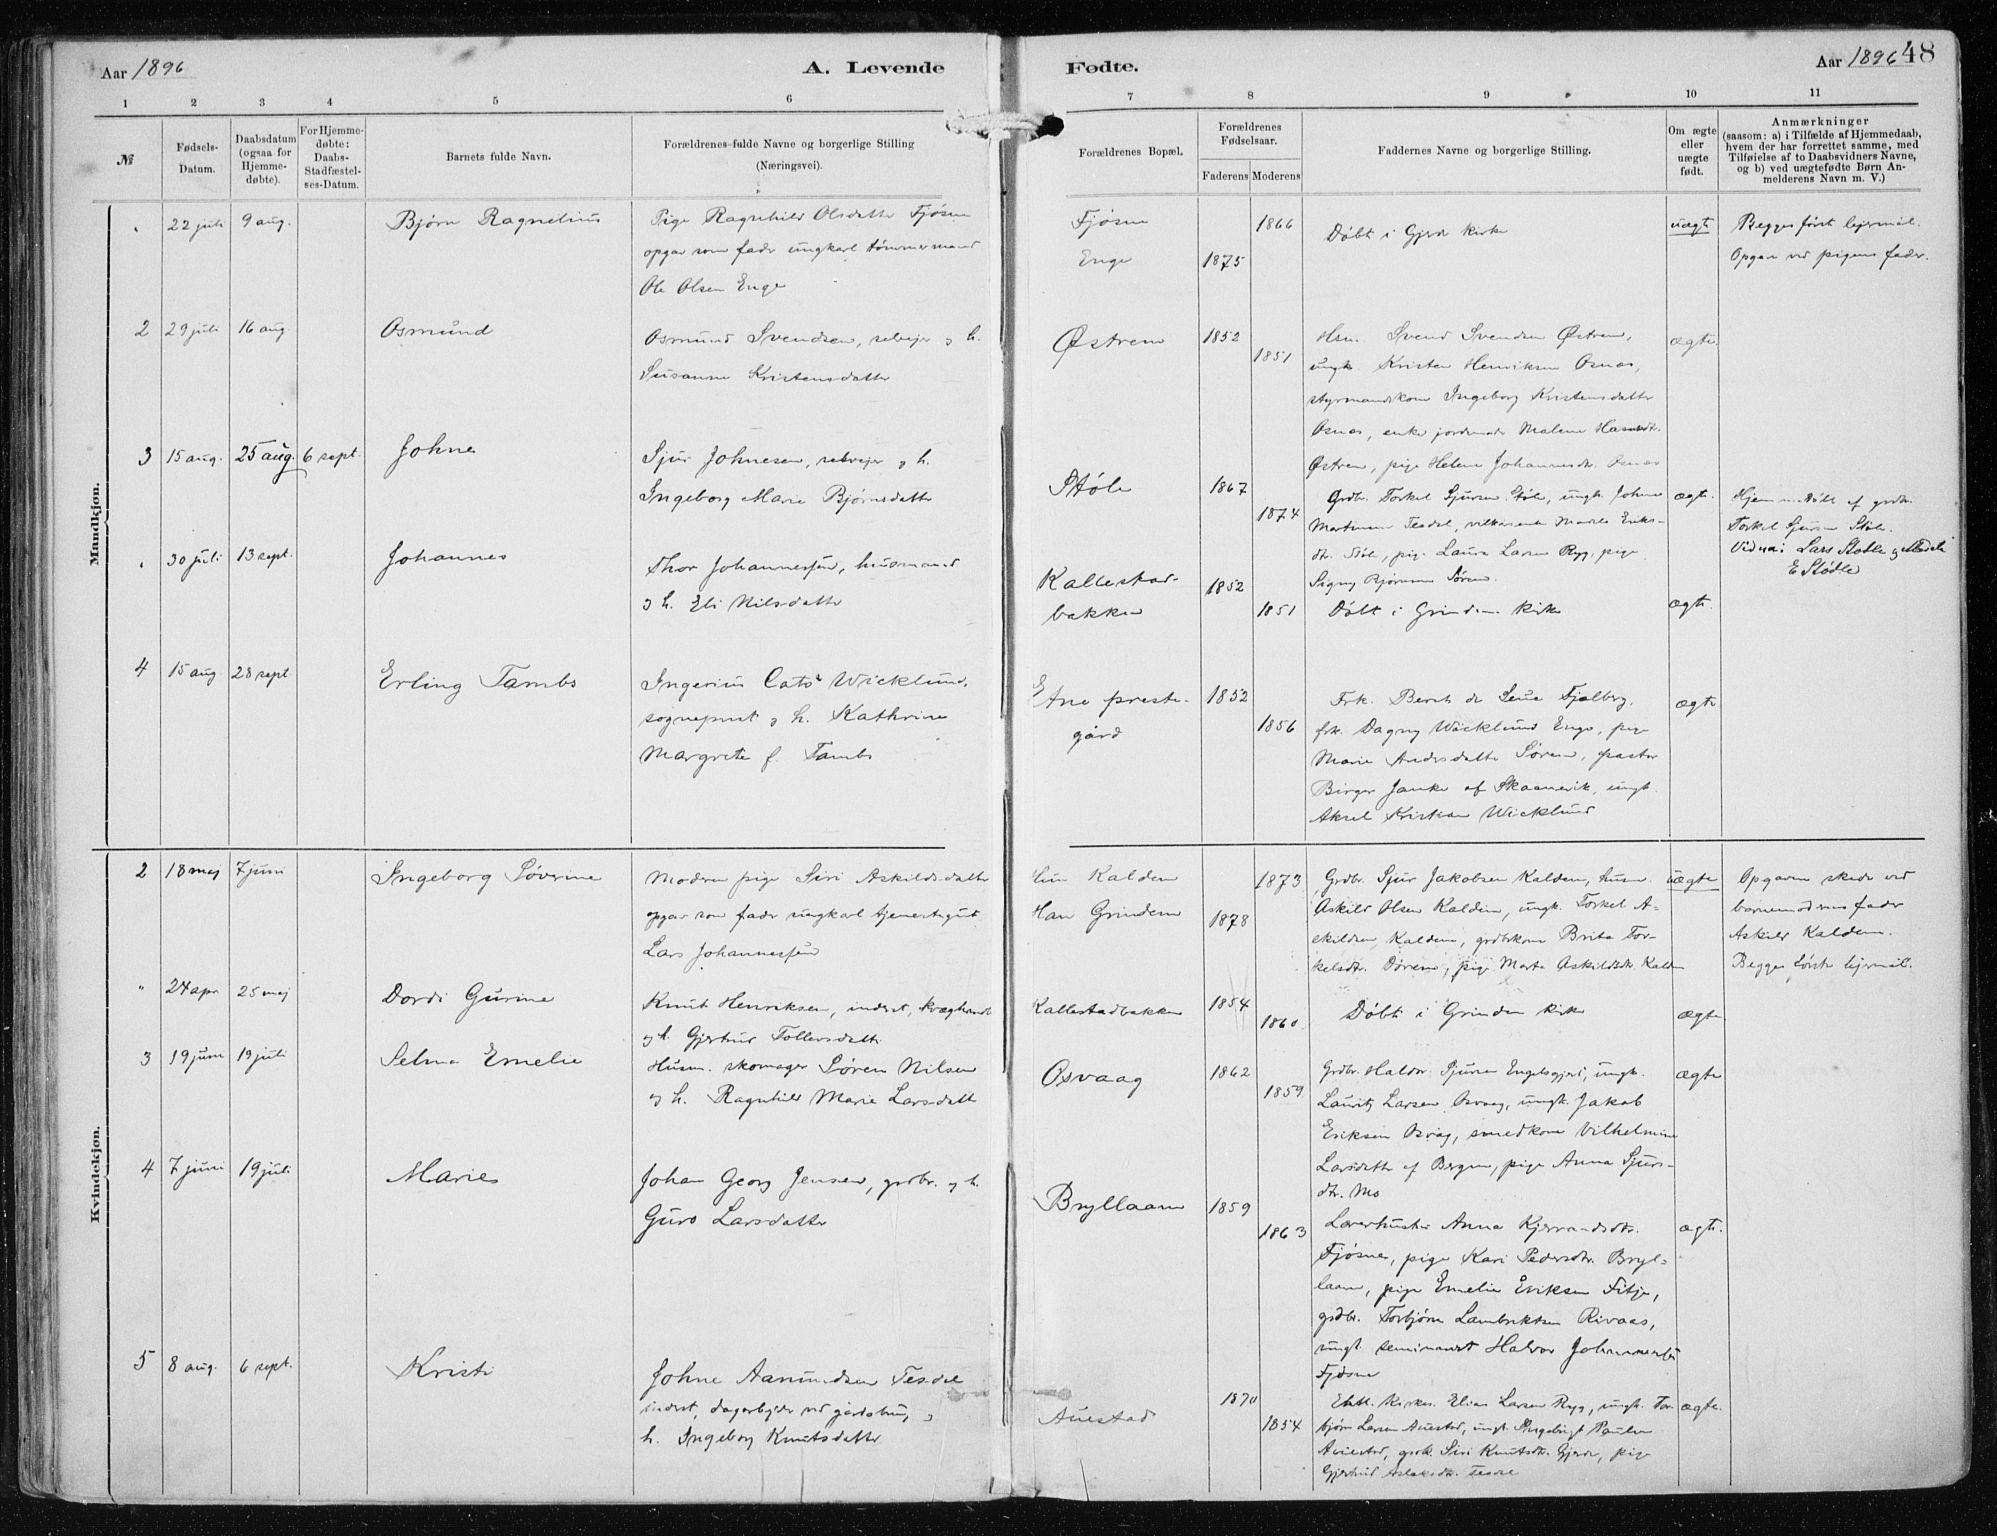 Aar 1896
A. Levende
Fødte.
Aar 1896
48
1 2 3 4 5 6 7 8 9 10 11
№
Fødsels-
Datum.
Daabsdatum
(ogsaa for
Hjemme-
døbte).
For Hjemme-
døbte:
Daabs-
Stadfæstel-
ses-Datum.
Barnets fulde Navn.
Forældrenes fulde Navne og borgerlige Stilling
(Næringsvei).
Forældrenes Bopæl.
Forældrenes
Fødselsaar.
Faderens Moderens
Faddernes Navne og borgerlige Stilling.
Om ægte
eller
uægte
født.
Anmærkninger
(saasom: a) i Tilfælde af Hjemmedaab,
hvem der har forrettet samme, med
Tilføielse af to Daabsvidners Navne,
og b) ved uægtefødte Børn An-
melderens Navn m. V.)
Mandkjøn.
22 juli 9 aug. Bjørn Ragnelius
Pige Ragnhild Olsdatter Fjøsne
opgav som fader ungkarl tømmermand
Ole Olsen Enge
Fjøsne
Enge
1875
1866
Døbt i Gjerde kirke
uægte
Begges først lejermål.
Opgav ved pigens fader.
2 29 juli 16 aug Osmund
Osmund Svendsen, selvejer og h.
Susanne Kristensdatter
Østrem
1852
1851
Hsm. Svend Svendsen Østrem,
ungk. Kristen Henriksen Osnas,
styrmandskone Ingeborg Kristensdatter
Osnas, enke jordemoder Malene
Østrem, pige Helene Johannesdtr. Osnas
ægte.
3 15 aug. 25 aug. 6 sept. Johne
Sjur Johnesen, selvejer og h.
Ingeborg Marie Bjørnsdatter
Støle
1867
1874
Grdbr. Torkel Sjursen Støle, ungk. Johne
Martinus Tesdal, vilkårsenke Madele Eriks-
dtr. Støle, pige Laura Larsen Ryg, pige
Signy Bjørnsen Søren.
ægte.
Hjemmedøbt af grdbr.
Torkel Sjursen Støle.
Vidner: Lars Stødle og Madele
E Stødle
30 juli 13 sept. Johannes
Thor Johannessen, husmand
og h. Eli Nilsdatter
Kallestad-
bakken
1852
1851
Døbt i Grinden kirke
ægte.
4 15 aug 28 sept Erling Tambs
Ingerius Cato Wicklund,
sogneprest og h. Kathrine
Margrete f. Tambs
Etne preste-
gård
1852
1856
Frk. Berth de Seue Fjelberg,
frk. Dagny Wicklund Enge, pige
Marie Andersdatter Sørem, pastor
Birger Janke af Skaanevik, ungk.
Aksel Kristian Wicklund
ægte
Kvindekjøn.
2 18 maj 7 juni Ingeborg Søverine
Moderen pige Siri Askildsdatter
opgav som fader ungkarl tjenestegut
Lars Johannessen
Hun Kalden
Han Grindem
1878
1873
Grdbr. Sjur Jakobsen Kalden, husm.
Askild Olsen Kalden, ungk. Torkel A-
skildsen Kalden, grdbrkone Brita Tor-
kelsdtr. Sørem, pige Marta Askildsdtr. Kalden
uægte
Opgaven skede ved
barnemoderens fader
Askild Kalden.
Begges første lejermål.
" 24 apr 25 maj Dordi Gurine
Knut Henriksen, inderst, kræghandl.
og h. Gjertrud Tollevsdatter
Kallestadbakken
1854
1860
Døbt i Grinden kirke
ægte
3 19 juni 19 juli Selma Emelie
Husm. skomager Søren Nilsen
og h. Ragnhild Marie Larsdatter
Osvaag
1862
1859
Grdbr. Haldor Sjursen Engelsgjerd, ungk.
Lauritz Larsen Osvaag, ungk. Jakob
Eriksen Osvåg, smedkone Vilhelmine
Larsdatter af Bergen, pige Anna Sjurs-
dtr. Mo
ægte
4 7 juni 19 juli Marie
Johan Georg Jensen, grdbr. og h.
Guro Larsdatter
Bryllaam
1859
1863
Lærerhustru Anna Kjervandsdtr.
Fjøsne, pige Kari Pedersdtr. Bryl-
laam, pige Emelie Eriksen Fitje,
grdbr. Torbjørn Lambriktsen Rivaas,
ungk. seminarist Halvor Johannessen
Fjøsne
ægte.
5 8 aug. 6 sept. Kristi
Johne Aamundsen Tesdal
inderst, dagarbejder ved gårdsbrug, og
h. Ingeborg Knutsdatter
Auestad
1870
1854
Kirkes. Elias Larsen Ryg, ungk. Tor-
bjørn Larsen Auestad, ungk. Ingebrigt Paulsen
Auestad, Siri Knutsdtr. Gjerde, pige
Gjertrud Aslaksdtr. Tesdal
ægte.